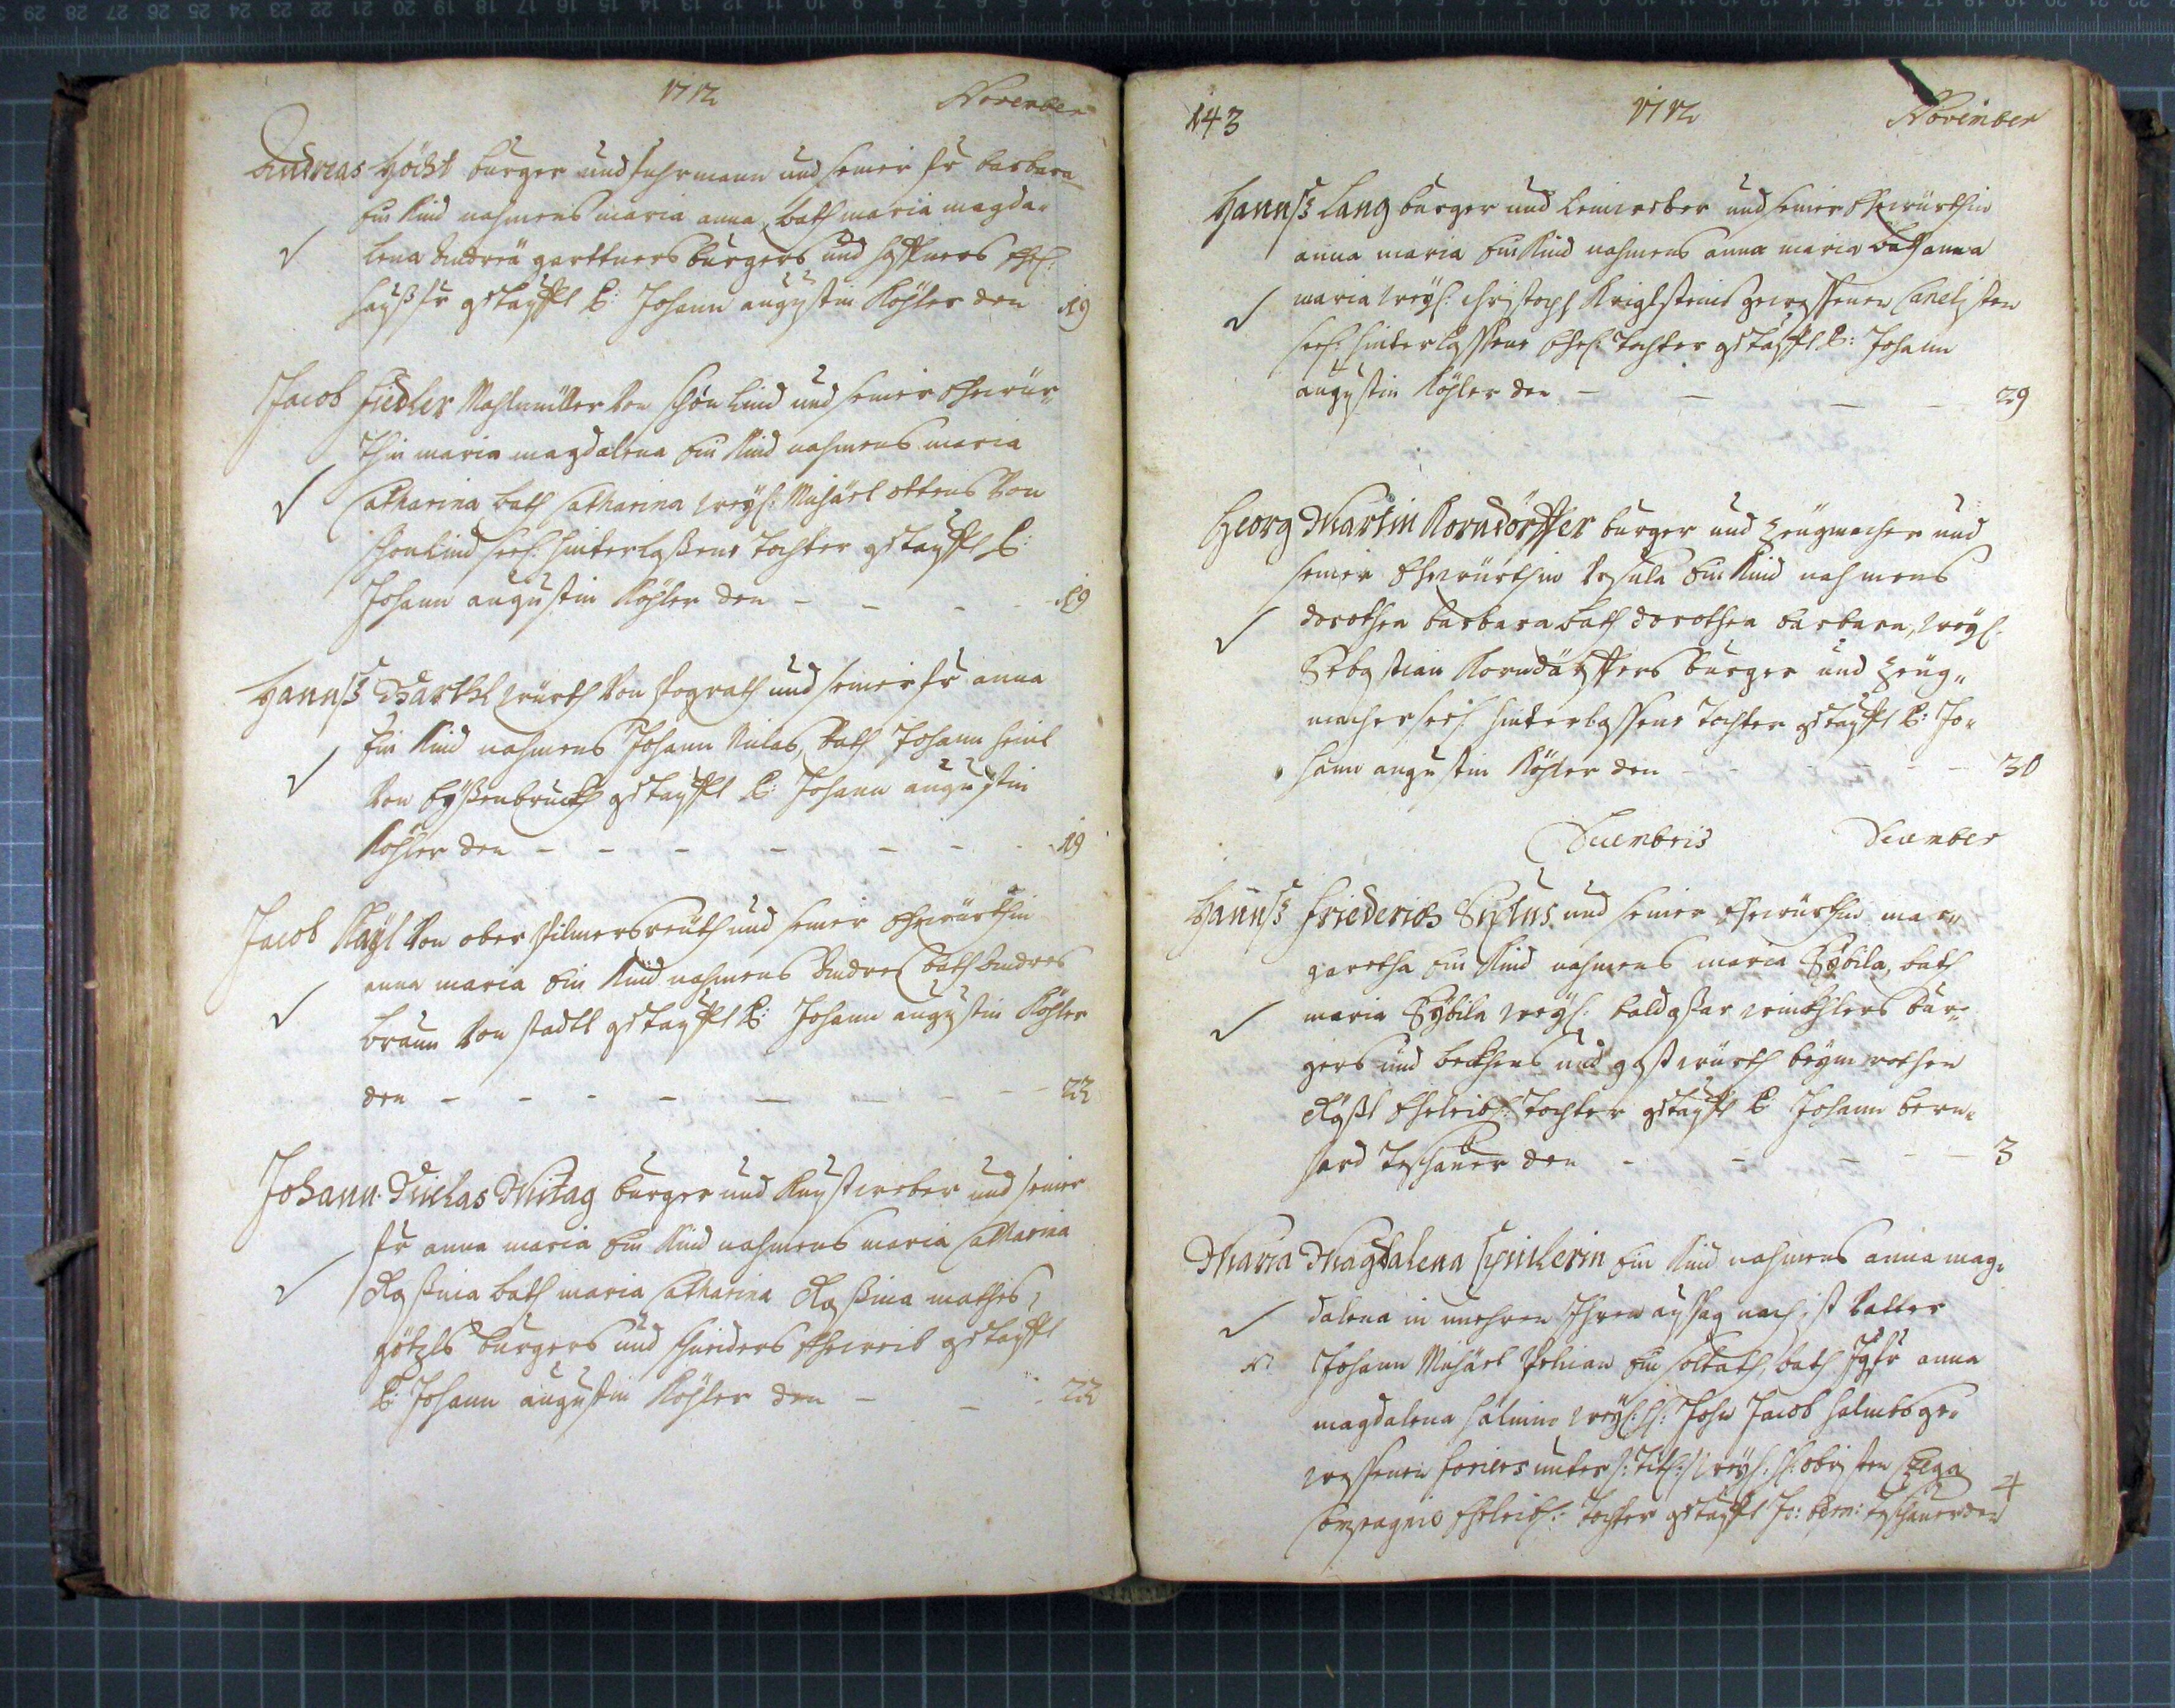 1712 November
Andreas Höchl burger und fuhrmann und seiner fr barbara
Ein Kind nahmens maria anna, bath maria magda-
lena Andreä garttners burgers und haffners ehel:
haußfr gstaufft P: Johann augustin Köhler den 19
Jacob Fiedler Mahlmüller von schönlind und seiner Ehewür-
thin maria magdalena Ein Kind nahmens maria
Catharina bath Catharina weyl: Michäel ottens von
schönlind seel: hinterlaßene tochter gstaufft P:
Johann augustin Köhler den - - - - 19
Hannß Barthl würth von and seiner fr anna
Ein Kind nahmens Johann Niclas, bath Johann
von gstaufft P: Johann augustin
Köhler den - - - - - - 19
Jacob Kayl von ober pilmersreuth und seiner Ehewürthin
anna maria Ein Kind nahmens Andres bath Andres
braun von stadtl gstaufft P: Johann augustin Köhler
den - - - - - - - - 22
Johann Niclas Mitag burger und Kunstweber und seiner
fr anna maria Ein Kind nahmens maria Catharina
Rosina bath maria Catharina Rosina mathes
götzls burgers und schneiders Eheweib gstaufft
P: Johann augustin Köhler den - - - 22
143 1712 November
Hannß Lang burger und leinweber und seiner Ehewürthin
anna maria Ein Kind nahmens anna maria bath anna
maria weyl: christoph Kriglsteins gewessenen Canelisten
seel: hinterlassene Ehel: tochter gstaufft P: Johann
augustin Köhler den - - - - 29
Georg Martin Korndörffer burger und zeugmacher und
seiner Ehewürthin Ursula Ein Kind nahmens
dorothea barbara bath dorothea barbara, weyl:
Sebastian Korndörffers burger und zeug-
macher seel: hinterlassene tochter gstaufft P: Jo-
hann augustin Köhler den - - - - - 30
Decembris December
Hannß Friederich und seiner Ehewürthin mar-
garetha Ein Kind nahmens maria Sybila, bath
maria Sybila weyl: baldasar winckhlers bur-
gers und beckhens und gastwürth beym rothen
Rößl Eheleibl: tochter gstaufft P: Johann bern-
hard teschauer den - - - - 3
Maria Magdalena Ein Kind nahmens anna mag-
dalena in unehren ihrem aussag nach ist vatter
N: Johann Michäel Ein soldath, bath Jgfr anna
magdalena weyl: H: Johan Jacob ge-
wessenen foriers unter s: tit: weyl: H: obristen
Compagnie Eheleibl: tochter gstaufft Jo: bern: teschauer den 4